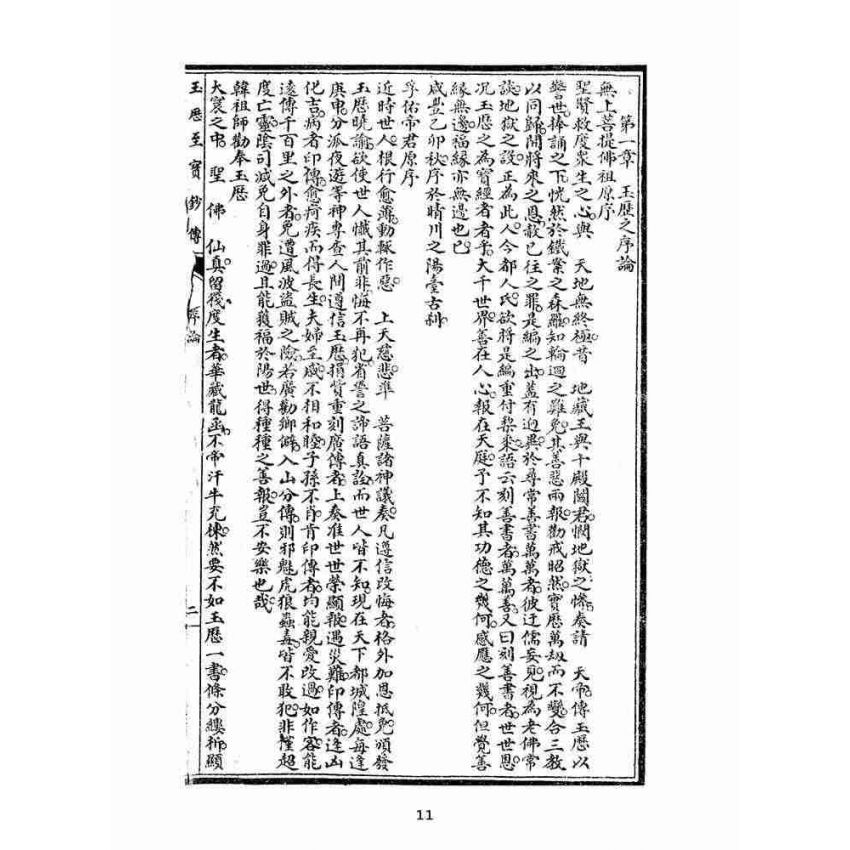 第一章　玉歷之序論
無上菩提佛祖原序
聖賢救度衆生之心與　天地無終極昔　地藏王與十殿閻君憫地獄之慘奏請　天帝傳玉歷以
警世捧誦之下恍然於鐵案之森羅知輪迴之難免其善惡兩報勸戒昭然實歷萬刼而不變合三教
以同歸開將來之恩赦已往之罪是編之出蓋有迥異於尋常善書萬萬者彼迂儒妄見視為老佛常
談地獄之設正為此人今都人氏欲將是編重付梨棗語云刻善書者萬萬善又曰刻善書者世世恩
况玉歷之為寳經者者乎大千世界善在人心報在天庭予不知其功德之幾何感應之幾何但覺善
緣無邊福緣亦無邊也已
咸豐乙卯秋序於晴川之陽臺古刹
孚佑帝君原序
近時世人根行愈薄動輒作惡　上天慈悲準　菩薩諸神議奏凡遵信改悔者格外加恩抵免頒發
玉歷曉諭欲使世人懺其前非悔不再犯省誓之諦語真詮而世人皆不知現在天下都城隍處每逢
庚申分派夜遊等神專查人間遵信玉歷捐貲重刻廣傳者上奏准世世榮顯報遇災難印傳者逢凶
化吉病者印傳愈疴疾而得長生夫婦至戚不相和睦子孫不肖肯印傳者均能親愛改過如作客能
遠傳千百里之外者免遭風波盜賊之險若廣勸鄉僻入山分傳則邪魁虎狼蟲毒皆不敢犯非僅超
度亡靈陰司減免自身罪過且能獲福於陽世得種種之善報豈不安樂也哉
韓祖師勸奉玉歷
大寰之中　聖　佛　仙真留筏度生者華藏龍函不啻汗牛充棟然要不如玉歷一書條分縷析顯
玉歷至寳鈔傳　序論　二
11